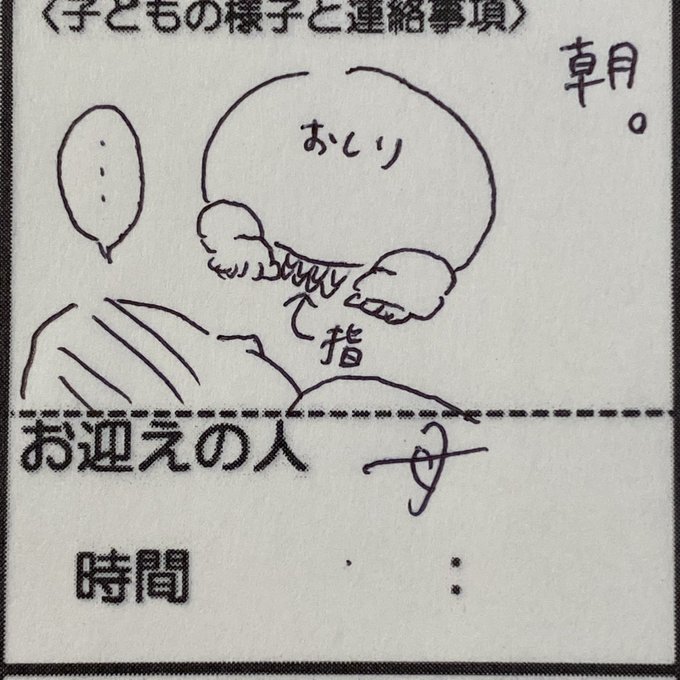 〈子どもの様子と連絡事項〉
朝。
・・・
おしり
指
お迎えの人
す
時間 :